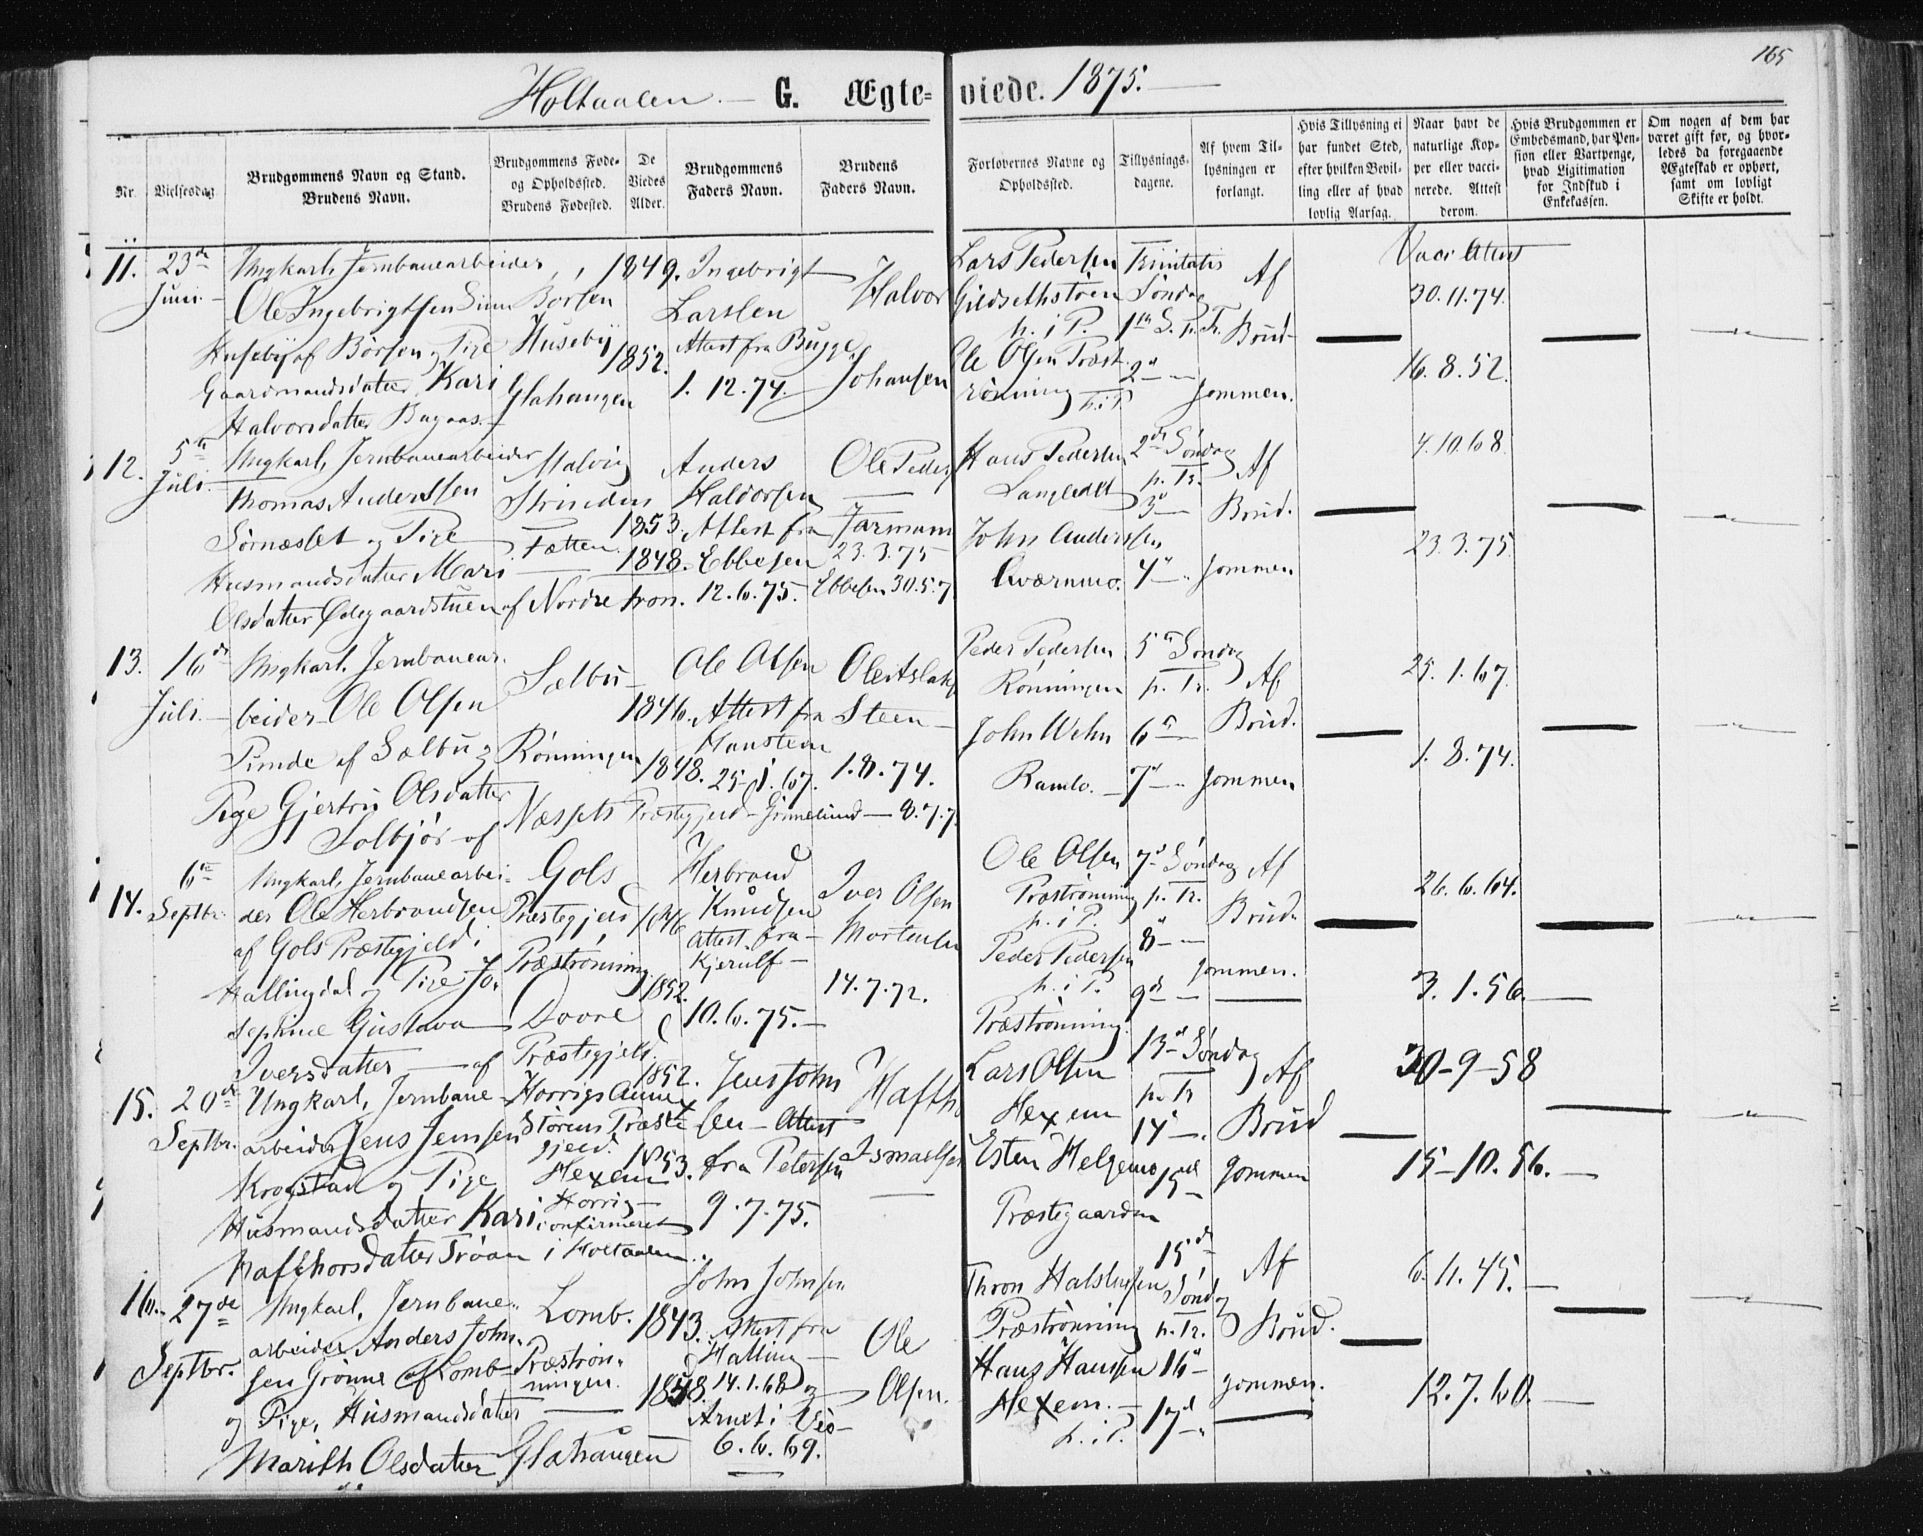 165
Holtaalen. — G. Ægteviede. 1875. —
Nr.
Vielsesdag.
Brudgommens Navn og Stand.
Brudens Navn.
Brudgommens Føde-
og Opholdssted.
Brudens Fødested.
De
Viedes
Alder.
Brudgommens
Faders Navn.
Brudens
Faders Navn.
Forlovernes Navne og
Opholdssted.
Tillysnings-
dagene.
Af hvem Til-
lysningen er
forlangt.
Hvis Tillysning ei
har fundet Sted,
efter hvilken Bevil-
ling eller af hvad
lovlig Aarsag.
Naar havt de
naturlige Kop-
per eller vacci-
nerede. Attest
derom.
Hvis Brudgommen er
Embedsmand, har Pen-
sion eller Vartpenge,
hvad Ligitimation
for Indskud i
Enkekassen.
Om nogen af dem har
været gift før, og hvor-
ledes da foregaaende
Ægteskab er ophørt,
samt om lovligt
Skifte er holdt.
11.
23de
Juni
Ungkarl, Jernbanearbeider
Ole Ingebrigtsen
Huseby af Børsen, Pige
Gaardmandsdatter Kari
Halvorsdatter Bagaas
Borsen
Huseby
Glahaugen
1849.
1852.
Ingebrigt
Larssen
Attest fra Bugge
1. 12. 74.
Halvor
Johansen
Lars Pedersen
Gildsethstøen
h. i P.
Ole Olsen Præst-
rönning h. i P.
Trinitatis
Söndag
1ste S. p. Tr.
2
Af
Brud-
gommen.
Vacc. Attest
30. 11. 74.
16. 8. 52.
12.
5te
Juli
Ungkarl, Jernbanearbeider
Thomas Anderssen
Sörnæslet og Pige
Husmandsdatter Mari
Olsdatter Ødegaardstuen af Nordre Fron.
Malvig
Strinden
Fætten
1853.
1848.
Anders
Haldorsen
Attest fra
Ebbesen
12. 6. 75.
Ole Peders
Formann
23. 3. 75
Ebbesen 30.5.7
Hans Pedersen
Langledet
John Anderssen
Kværnmo
2den Söndag
p. Tr.
3
4
Af
Brud.
gommen
4. 10. 68
23. 3. 75.
13.
16de
Juli
Ungkarl. Jernbanear-
beider Ole Olsen
Punde af Sælbu og
Pige Gjertru Olsdatter
Solbjör af
Sælbu
Rönningen
Næssets Præstegjeld - Grønnelund — 8. 7. 7
1846.
1848.
Ole Olsen
Attest fra
Hanstein
25. 1. 67.
Ole Aslaks
Steen
1. 8. 74.
Peder Pedersen
Rönningen
John Wehn
Ramlo.
5te Söndag
p. Tr.
6
7
Af
Brud.
gommen
25. 1. 67.
1. 8. 74.
14.
6te
Septbr.
Ungkarl, Jernbanearbei-
der Ole Herbrandsen
af Gols Præstegjeld i
Hallingdal og Pige Jo-
sephine Gustava
Iversdatter — af
Gols
Præstegjeld
Præströnning
Dovre
Præstegjeld.
1846
1852.
Herbrand
Knudsen
Attest fra
Kjerulf
10. 6. 75.
Iver Olsen
Mortensen
14. 7. 72.
Ole Olsen
Præströnning
h. i P.
Peder Pedersen
h. i P.
Præströnning.
7de Söndag
p. Tr.
8
9de
Af
Brud
gommen.
26. 6. 64.
3. 1. 56.
15.
20de
Septbr.
Ungkarl, Jernbane-
arbeider Jens Jensen
Krogstad og Pige
Husmandsdatter Kari
Hafthorsdatter Tröan i Holtaalen.
Horrigs Annex
Störens Præste
gjeld.
Hexem
Horrig
confirmeret
1852.
1853.
Jens John
sen - Attest
fra Petersen
9. 7. 75.
Haftho
Ismaelsen
Lars Olsen
Hexem
Esten Helgemo
Præstegaarden
13de Söndag
p. Tr.
14
15de
Af
Brud
gommen
30-9-58
15-10. 56.
16.
27de
Septbr.
Ungkarl, Jernbane-
arbeider Anders John-
sen Grönne af Lomb
og Pige, Husmandsdatter
Marith Olsdatter
Lomb.
Præströn-
ningen.
Glahaugen
1843.
1848.
John Johnsen
Attest fra
Halling
14. 1. 68 og
Arnet i
6. 6. 69.
Ole
Olsen.
Thron Halstensen
Præströnning
Hans Hansen
Hexem.
h. i P.
15de
Söndag
p. Tr.
16
17de
Af
Brud.
gommen.
6. 11. 45.
12. 7. 60.